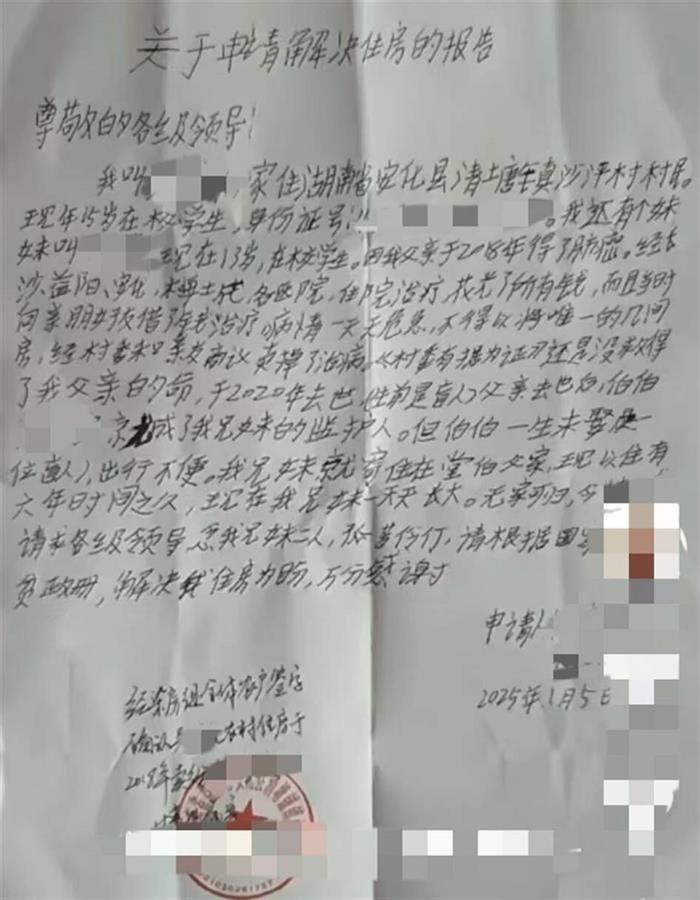 关于申请解决住房的报告
尊敬的各级领导！
我叫 ，家住湖南省安化县清塘镇真沙泙村村民。
现年15岁在校学生，身份证号： 。我还有个妹
妹叫 现在13岁，在校学生。因我父亲于2018年得了肺癌。经长
沙、益阳、安化、 各医院，住院治疗，花光了所有钱，而且当时
向亲朋好友借了钱治疗。病情一天天危急，不得以将唯一的几间
房，经村委和亲友商议卖掉了治病。（村委有据为证）可还是没救得
了我父亲的命，于2020年去世（生前是盲人）父亲去世后，伯伯
成了我兄妹的监护人。但伯伯一生未娶是一
位 人），出行不便。我兄妹就寄住在堂伯父家，现以住有
六年时间之久，现在我兄妹一天天长大。无家可归，
请求各级领导念我兄妹二人，孤苦伶仃，请根据国
贫政册，解决我住房为盼，万分感谢！
申请人
2025年1月5日
经 房组全体农户签字
确认 农村住房于
2018年卖给